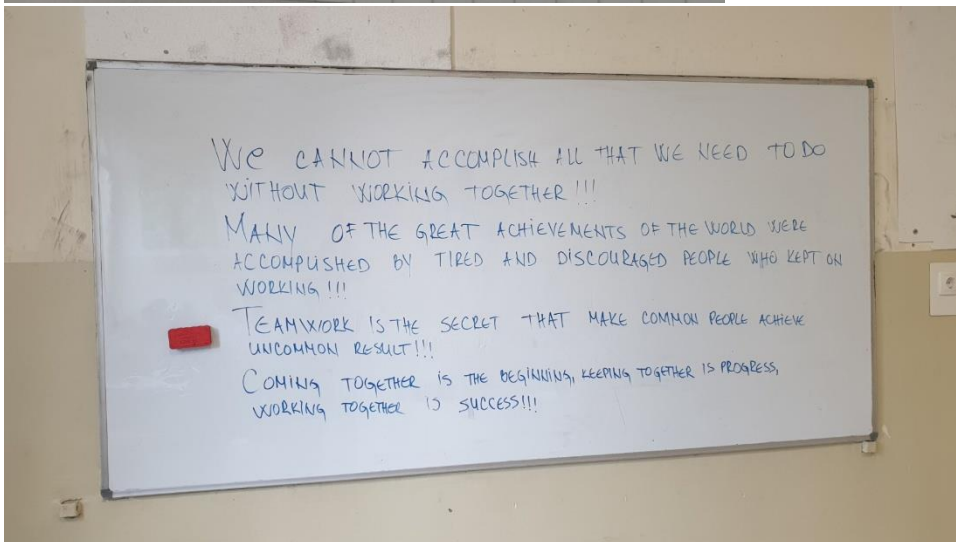 We CANNOT ACCOMPLISH ALL THAT WE NEED TO DO
WITHOUT WORKING TOGETHER!!!
MANY OF THE GREAT ACHIEVEMENTS OF THE WORLD WERE
ACCOMPLISHED BY TIRED AND DISCOURAGED PEOPLE WHO KEPT ON
WORKING!!!
TEAMWORK IS THE SECRET THAT MAKE COMMON PEOPLE ACHIEVE
UNCOMMON RESULT!!!
COMING TOGETHER IS THE BEGINNING, KEEPING TOGETHER IS PROGRESS,
WORKING TOGETHER IS SUCCESS!!!